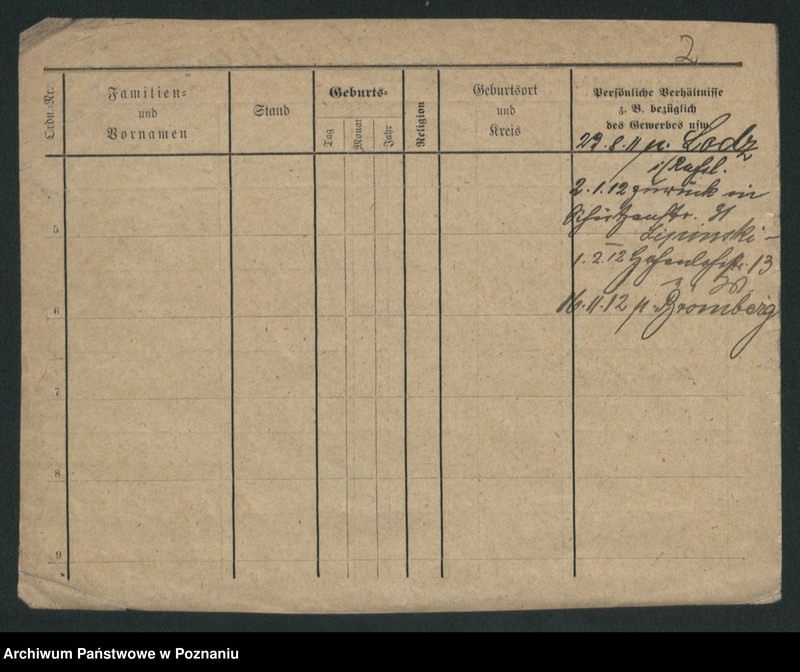 2
Ordn.-Nr.
Familien-
und
Vornamen
Stand
Geburts-
Tag
Monat
Jahr
Religion
Geburtsort
und
Kreis
Persönliche Verhältnisse
z. B. bezüglich
des Gewerbes usw.
29.8.11 n. Lodz
i/Rußl.
2.1.12 zurück in
31
Lipinski -
1.2.12 13
16.11.12 n. Bromberg
5
6
7
8
9
Archiwum Państwowe w Poznaniu